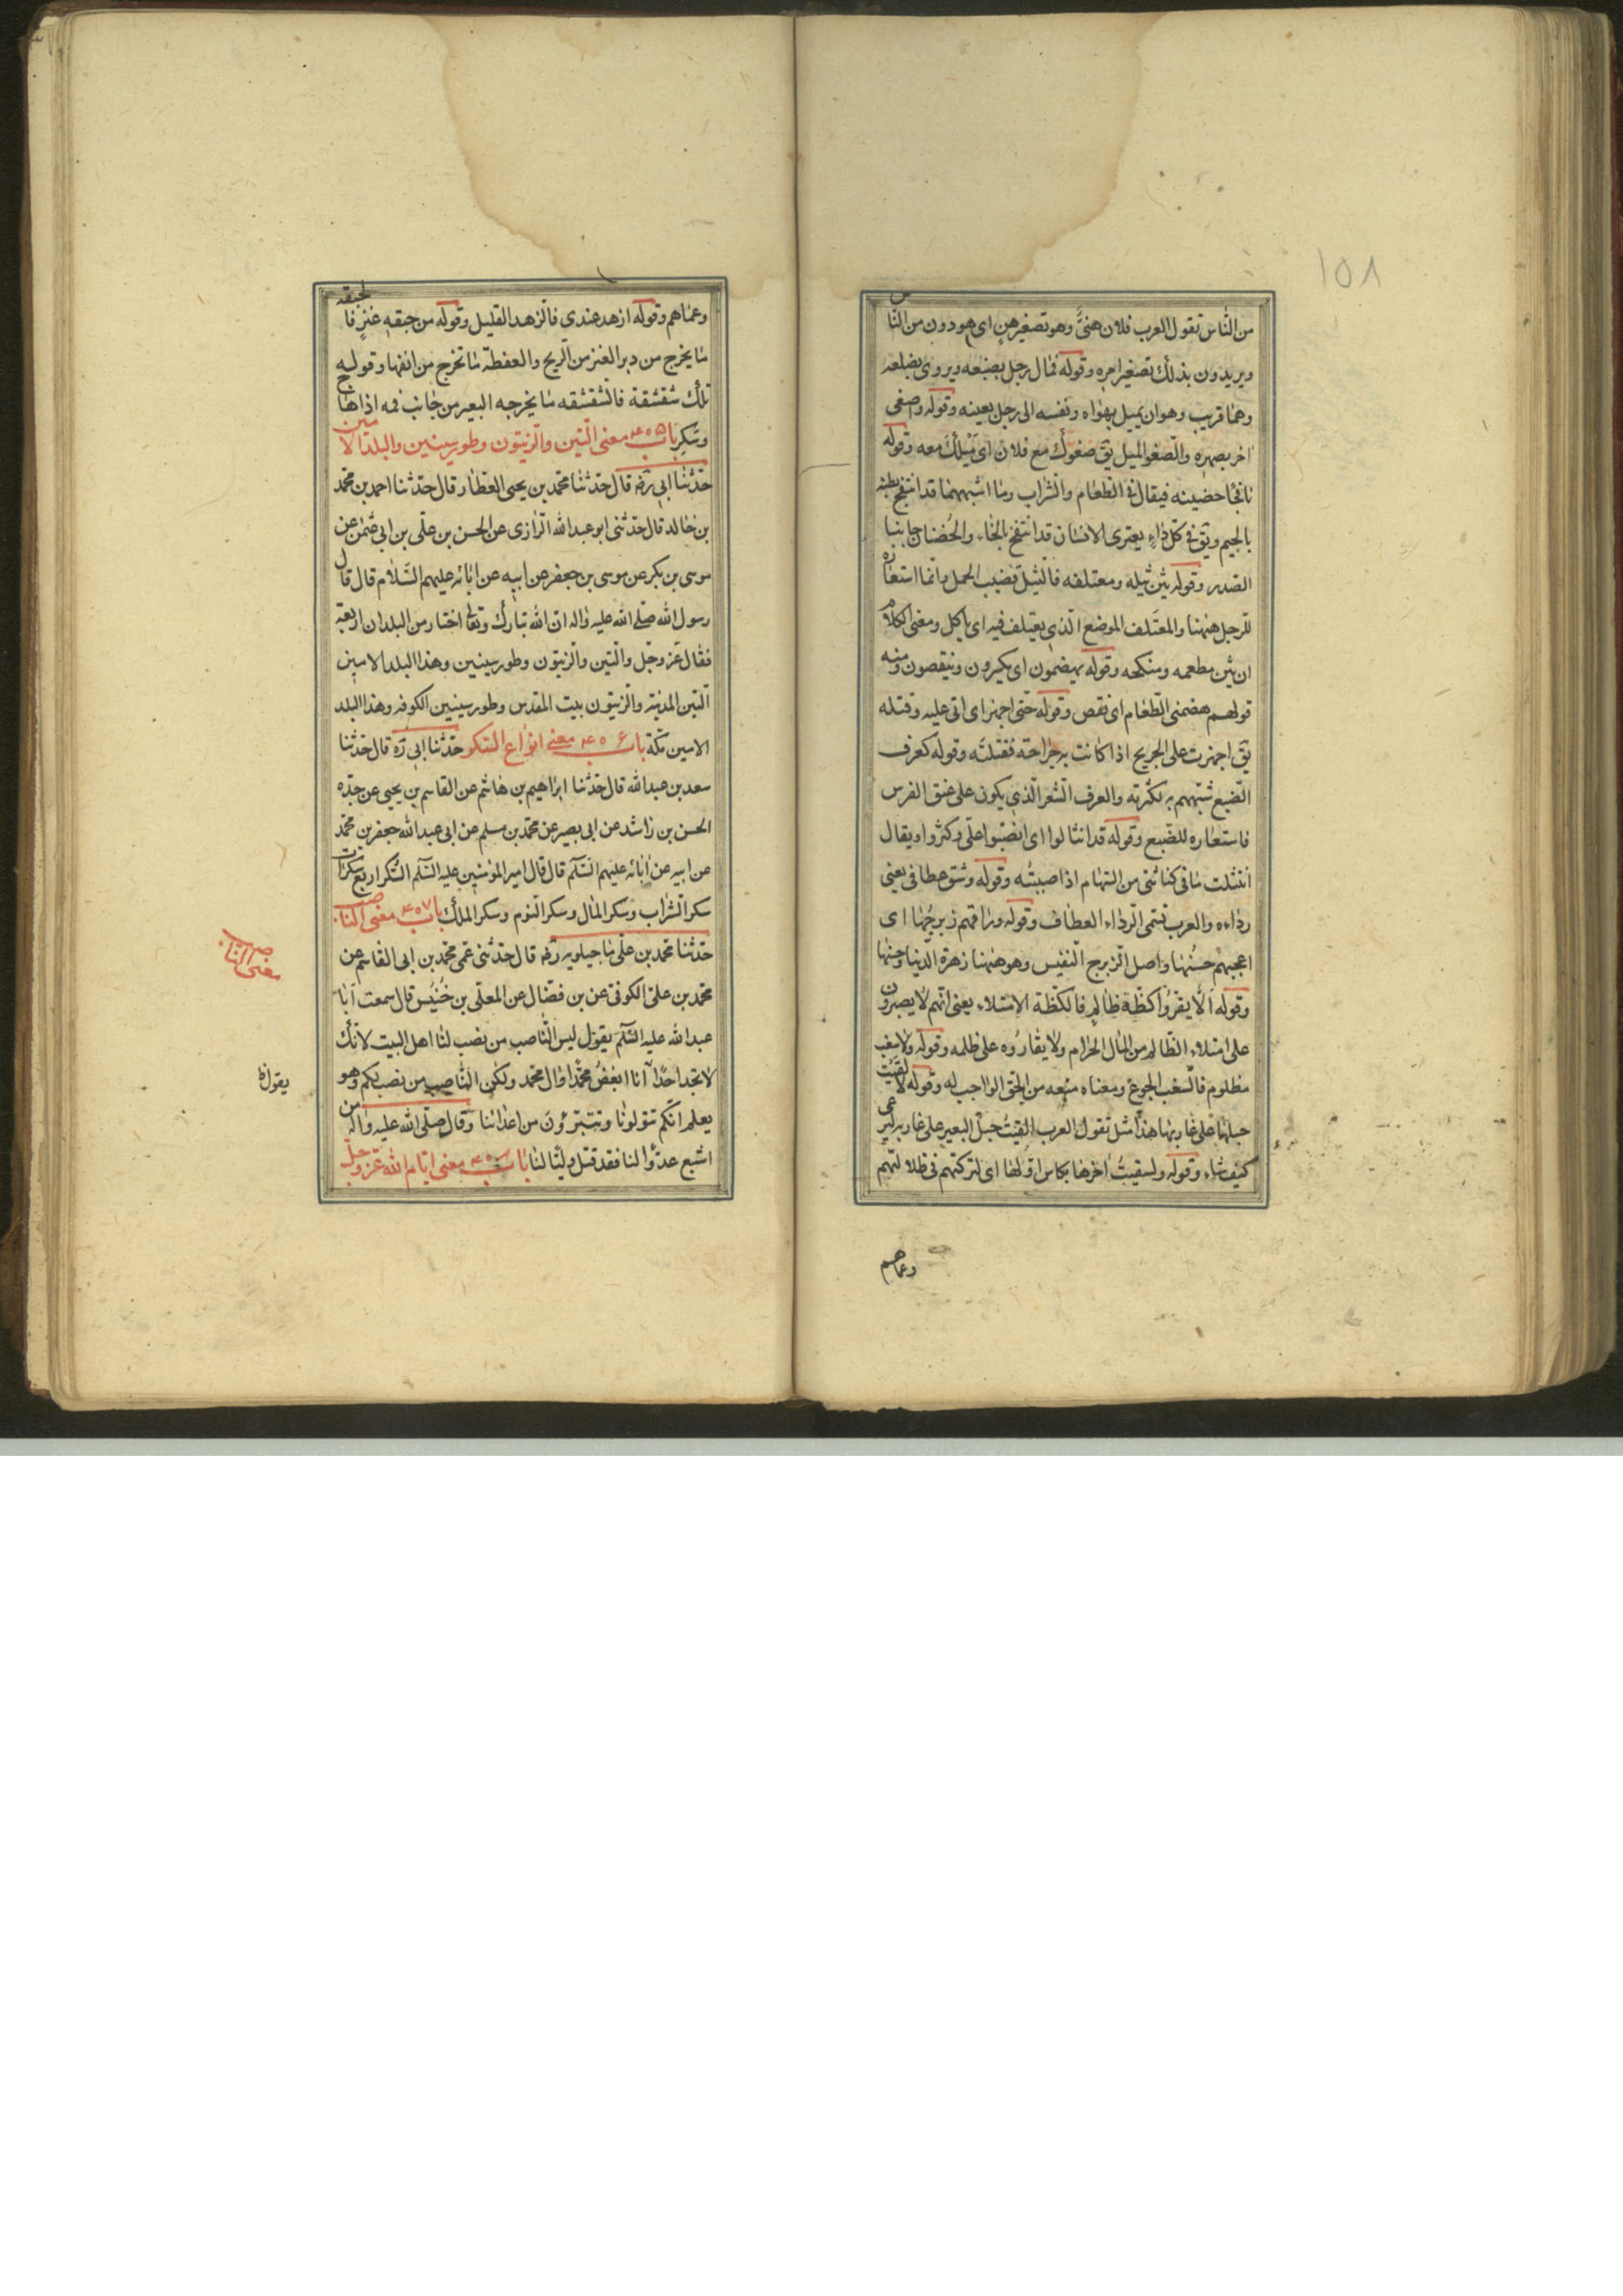 ١٥٨
من الناس تقول العرب فلان هنىّ وهو تصغير هن اى هو دون من النّاس
ويريدون بذلك تصغير امره وقوله فمال رجل بضبعه ويروى بضلعه
وهما قريب وهو ان يميل بهواه ونفسه الى رجل بعينه وقوله واصغى
اخر بصهره والصّغو الميل يق صغوك مع فلان اى ميلك معه وقوله
نافجا حضنيه فيقال فى الطّعام والشراب وما اشبههما قد انتفج بطنه
بالجيم ويق فى كلّ داء يعترى الانسان قد انتفخ بالخاء والحُضنان جانبا
الصدر وقوله بين ثيله ومعتلفه فالثيل قضيب الجمل وانما استعاره
للرجل هيهنا والمعتلف الموضع الذى يعتلف فيه اى ياكل ومعنى الكلام
ان بين مطعمه ومنكحه وقوله يهضمون اى يكسرون وينقصون ومنه
قولهم هضمنى الطعام اى نقص وقوله حتى اجهز اى اتى عليه وقتله
يق اجهزت على الجريح اذا كانت به جراحة فقتلته وقوله كعرف
الضبع شبّههم به لكثرته والعرف الشعر الّذى يكون على عنق الفرس
فاستعاره للضّبع وقوله قد انثالوا اى انصبّوا علىّ وكثروا ويقال
انتثلت ما فى كنانتى من السّهام اذا صببته وقوله وشق عطافى يعنى
رداءه والعرب تسمى الرداء العطاف وقوله وراقهم زبرجُها اى
اعجبهم حسُنها واصل الزبرج النفيس وهو هيهنا زهرة الدنيا وحسنها
وقوله الّا يقرّوا كظّة ظالمٍ فالكظّة الامتلاء يعنى انّهم لا يصبرون
على امتلاء الظّالم من المال الحرام ولا يقارّوه على ظلمه وقوله ولا سغب
مظلوم فالسّغب الجوع ومعناه منعه من الحقّ الواجب له وقوله لالقيت
حبلها على غاربها هذا مثل تقول العرب القيتُ حبل البعير على غاربه ليرعى
كيف شاء وقوله ولسقيتُ اخرها بكاس اوّلها اى لتركتهم فى ظلالتهم
وعماهم
وعماهم وقوله ازهد عندى فالزهد القليل وقوله من حبقه عنزٍ فالحبقه
ما يخرج من دبر العنز من الريح والعفطة ما تخرج من انفها وقوله
تلك شقشقة فالشقشقه ما يخرجه البعير من جانب فيه اذا هاج
وسكر باب ۴۵۵ معنى التين والزيتون وطور سينين والبلد الامين
حدّثنا ابى ره قال حدّثنا محمد بن يحيى العطار قال حدّثنا احمد بن محمد
بن خالد قال حدّثنى ابو عبد الله الرازى عن الحسن بن على بن ابى عثمن عن
موسى بن بكر عن موسى بن جعفر عن ابيه عن ابائه عليهم السّلام قال قال
رسول الله صلى الله عليه واله ان الله تبارك وتعا اختار من البلدان اربعة
فقال عزّ وجّل والتين والزيتون وطور سينين وهذا البلد الامين
التين المدينه والزيتون بيت المقدس وطور سينين الكوفه وهذا البلد
الامين مكّة باب ۴۵۶ معنى انواع السّكر حدّثنا ابى ره قال حدّثنا
سعد بن عبد الله قال حدّثنا ابراهيم بن هاشم عن القاسم بن يحيى عن جدّه
الحسن بن راشد عن ابى بصير عن محمد بن مسلم عن ابى عبد الله جعفر بن محمد
عن ابيه عن ابائه عليهم السّلم قال قال امير المؤمنين عليه السّلم السّكر اربع سكرات
سكر الشراب وسكر المال وسكر النوم وسكر الملك باب ۴۵۷ معنى الناصب
حدّثنا محمد بن على ماجيلويه ره قال حدّثنى عمى محمد بن ابى القاسم عن
محمد بن على الكوفى عن بن فضّال عن المعلى بن خُنيس قال سمعت ابا
عبد الله عليه السّلم يقول ليس النّاصب من نصب لنا اهل البيت لانّك
لا تجد احدًا انا ابغضُ محمّدًا وال محمد ولكن النّاصب من نصب لكم وهو
يعلم انّكم تتولونا وتتبرّؤن من اعدائنا وقال صلّى الله عليه واله من
اشبع عدوًّا لنا فقد قتل وليًّا لنا باب ۴۵۸ معنى ايّام الله عزّ وجلّ
معنى الناصب
يقول